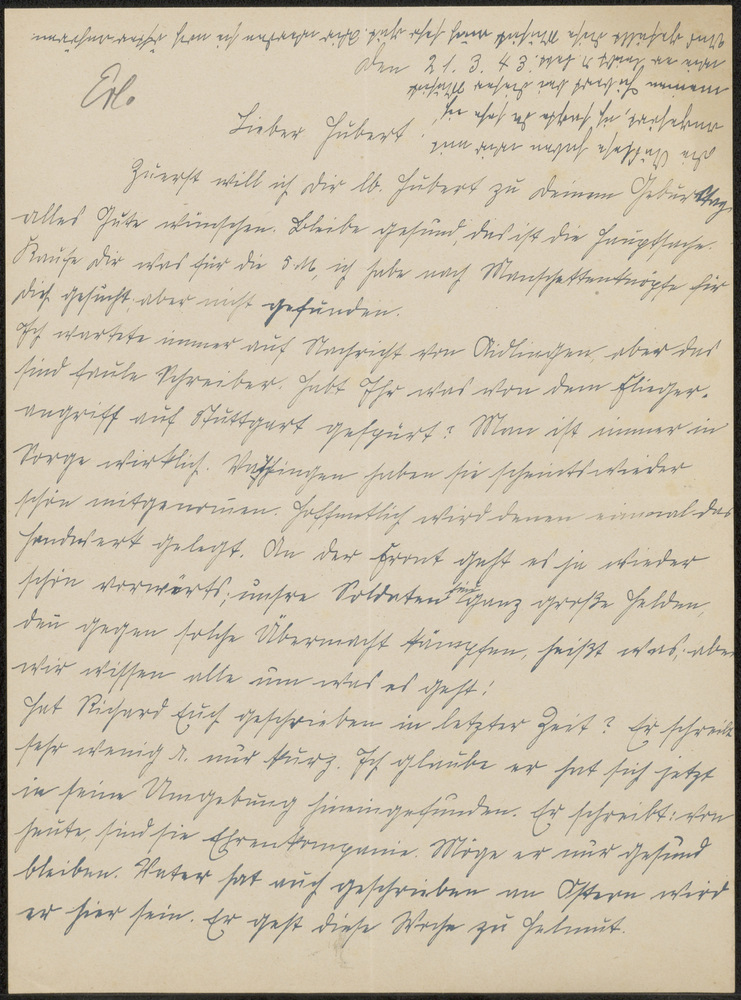 Den 21.3.43.
Erl.
Lieber Hubert!
Zuerst will ich Dir lb. Hubert zu Deinem Geburtstag
alles Gute wünschen. Bleibe gesund, das ist die Hauptsache.
Kaufe Dir was für die 5 M, ich habe nach Manschettenknöpfe für
Dich gesucht, aber nicht gefunden.
Ich wartete immer auf Nachricht von Aidlingen, aber das
sind faule Schreiber. Habt Ihr was von dem Flieger-
angriff auf Stuttgart gespürt? Man ist immer in
Sorge wirklich. Vaihingen haben sie scheints wieder
schön mitgenommen. Hoffentlich wird denen einmal das
Handwerk gelegt. An der Front geht es ja wieder
schön vorwärts, unsre Soldaten sind ganz große Helden,
den gegen solche Übermacht kämpfen, heißt was, aber
wir wissen alle um was es geht!
Hat Richard Euch geschrieben in letzter Zeit? Er schreibt
sehr wenig u. nur kurz. Ich glaube er hat sich jetzt
in seine Umgebung hineingefunden. Er schreibt: von
heute, sind sie Ehrenkompanie. Möge er nur gesund
bleiben. Vater hat auch geschrieben an Ostern wird
er hier sein. Er geht diese Woche zu Helmut.